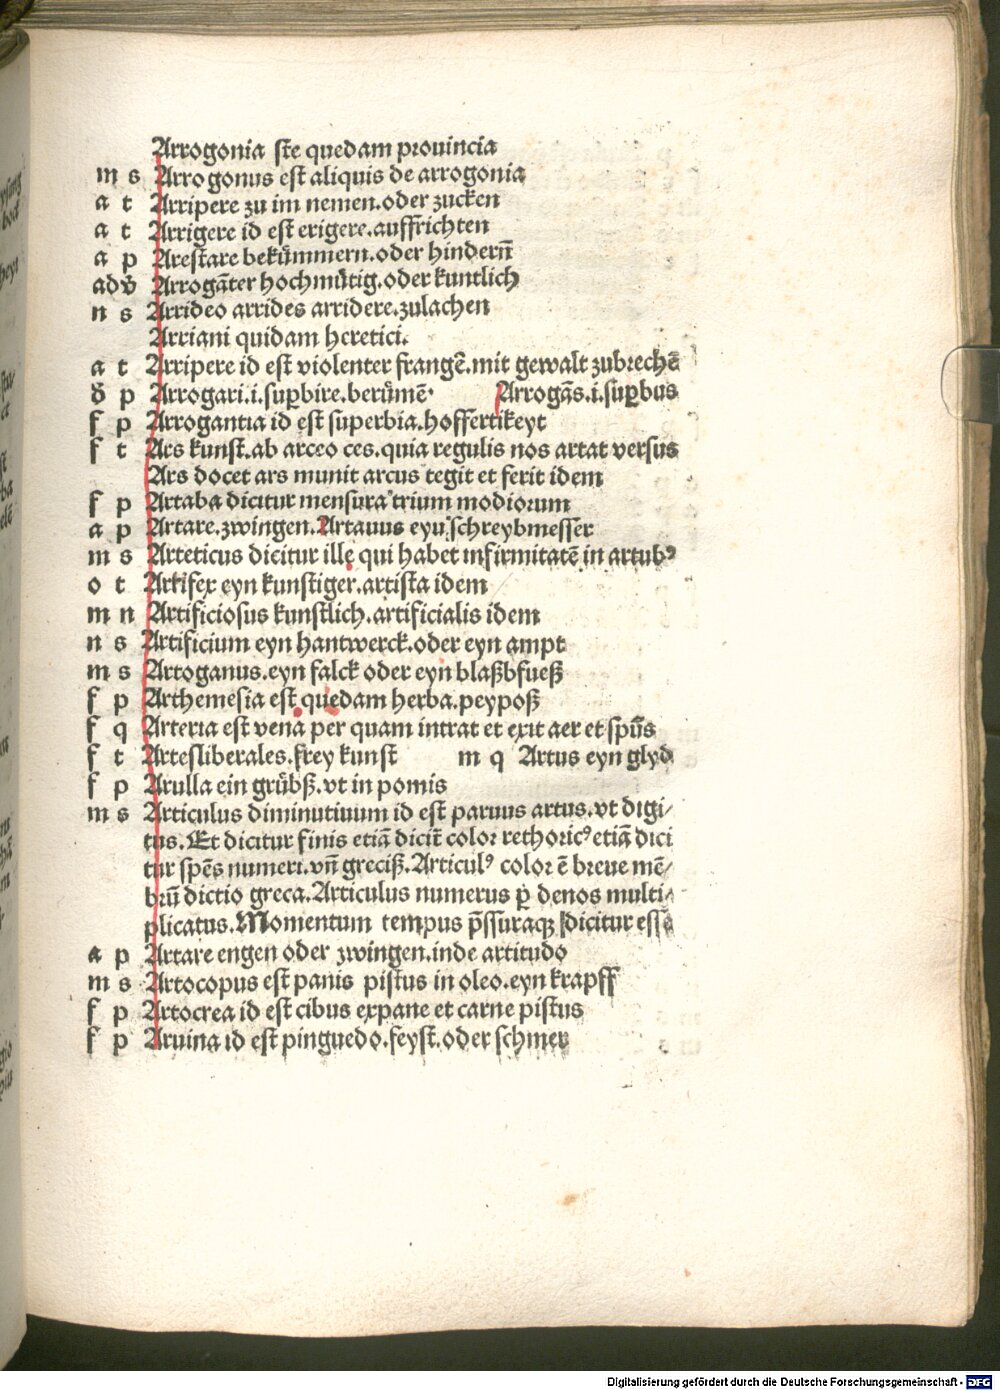 Arrogonia ste quedam prouincia
m s Arrogonus est aliquis de arrogonia
a t Arripere zu im nemen.oder zucken
a t Arrigere id est erigere.auffrichten
a p Arestare bekümmern.oder hindern̄
adv̄ Arrogāter hochmütig.oder kuntlich
n s Arrideo arrides arridere.zulachen
Arriani quidam heretici.
a t Arripere id est violenter frangē.mit gewalt zubrechē
d̄ p Arrogari.i.suꝑbire.berümē. Arrogās.i.suꝑbus
f p Arrogantia id est superbia.hoffertikeyt
f t Ars kunst.ab arceo ces.quia regulis nos artat versus
Ars docet ars munit arcus tegit et ferit idem
f p Artaba dicitur mensura trium modiorum
a p Artare.zwingen.Artauus eyn schreybmesser
m s Arteticus dicitur ille qui habet infirmitatē in artubꝰ
o t Artifex eyn kunstiger.artista idem
m n Artificiosus kunstlich.artificialis idem
n s Artificium eyn hantwerck.oder eyn ampt
m s Arroganus.eyn falck oder eyn blaßbfueß
f p Arthemesia est quedam herba.peypoß
f q Arteria est vena per quam intrat et exit aer et spūs
f t Artesliberales.frey kunst m q Artus eyn glyd
f p Arulla ein grübß.vt in pomis
m s Articulus diminutiuum id est paruus artus.vt digi/
tus. Et dicitur finis etiā dicit̄ color rethoricꝰ etiā dici
tur spēs numeri.vn̄ greciß.Articulꝰ color ē breue mē/
brū dictio greca.Articulus numerus ꝑ denos multi/
plicatus.Momentum tempus p̄ssuraqꝫ dicitur esse
a p Artare engen oder zwingen.inde artitudo
m s Artocopus est panis pistus in oleo.eyn krapff
f p Artocrea id est cibus expane et carne pistus
f p Aruina id est pinguedo.feyst.oder schmer
Digitalisierung gefördert durch die Deutsche Forschungsgemeinschaft - DFG